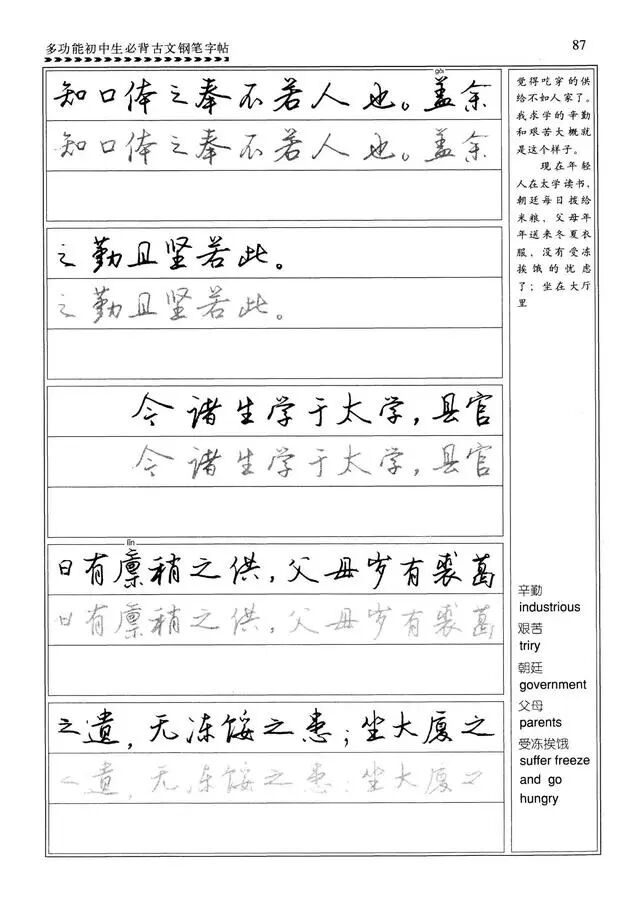 多功能初中生必背古文钢笔字帖
87
gài
知口体之奉不若人也。盖余
知口体之奉不若人也。盖余
之勤且坚若此。
之勤且坚若此。
今诸生学于太学，县官
今诸生学于太学，县官
lǐn
日有廪稍之供，父母岁有裘葛
日有廪稍之供，父母岁有裘葛
之遗，无冻馁之患；坐大厦之
之遗，无冻馁之患；坐大厦之
觉得吃穿的供
给不如人家了。
我求学的辛勤
和艰苦大概就
是这个样子。
现在年轻
人在太学读书，
朝廷每日拨给
米粮，父母年
年送来冬夏衣
服，没有受冻
挨饿的忧虑
了；坐在大厅
里
辛勤
industrious
艰苦
triry
朝廷
government
父母
parents
受冻挨饿
suffer freeze
and go
hungry